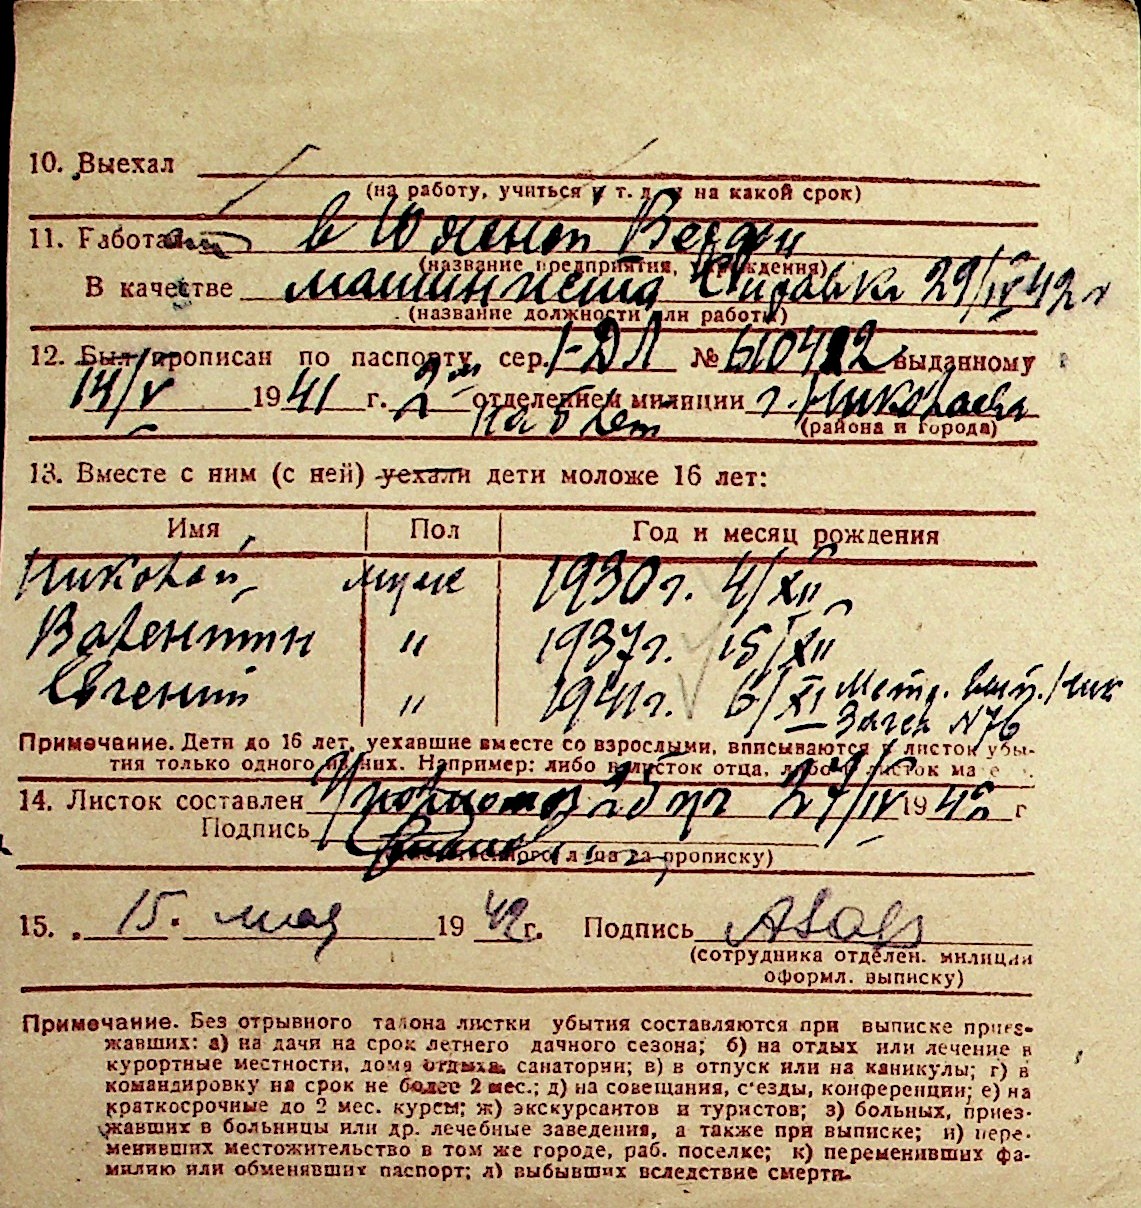 10. Выехал
(на работу, учиться и т. д. и на какой срок)
11. Работа
в Южной Верфи
(название предприятия, учреждения)
В качестве машиниста Справка 29/IV 42 г
(название должности или работы)
12. Был прописан по паспорту сер. I-ДЛ № 610482 выданному
14/V 1941 г. 2м отделением милиции г. Николаева
на 5 лет (района и города)
13. Вместе с ним (с ней) уехали дети моложе 16 лет:
Имя Пол Год и месяц рождения
Николай муж 1930 г. 4/XII
Валентин " 1937 г. 15/XII
Евгений " 1941 г. 6/XI Метр. вып. Ник
Загса N 76
Примечание. Дети до 16 лет, уехавшие вместе со взрослыми, вписываются в листок убы-
тия только одного из них. Например: либо в листок отца, либо в листок ма
14. Листок составлен 27/IV 1942 г
Подпись
лица за прописку)
15. 15. мая 1942 г. Подпись
(сотрудника отделен. милиции
оформл. выписку)
Примечание. Без отрывного талона листки убытия составляются при выписке приез-
жавших: а) на дачи на срок летнего дачного сезона; б) на отдых или лечение в
курортные местности, дома отдыха, санатории; в) в отпуск или на каникулы; г) в
командировку на срок не более 2 мес.; д) на совещания, с'езды, конференции; е) на
краткосрочные до 2 мес. курсы; ж) экскурсантов и туристов; з) больных, приез-
жавших в больницы или др. лечебные заведения, а также при выписке; и) пере-
менивших местожительство в том же городе, раб. поселке; к) переменивших фа-
милию или обменявших паспорт; л) выбывших вследствие смерти.